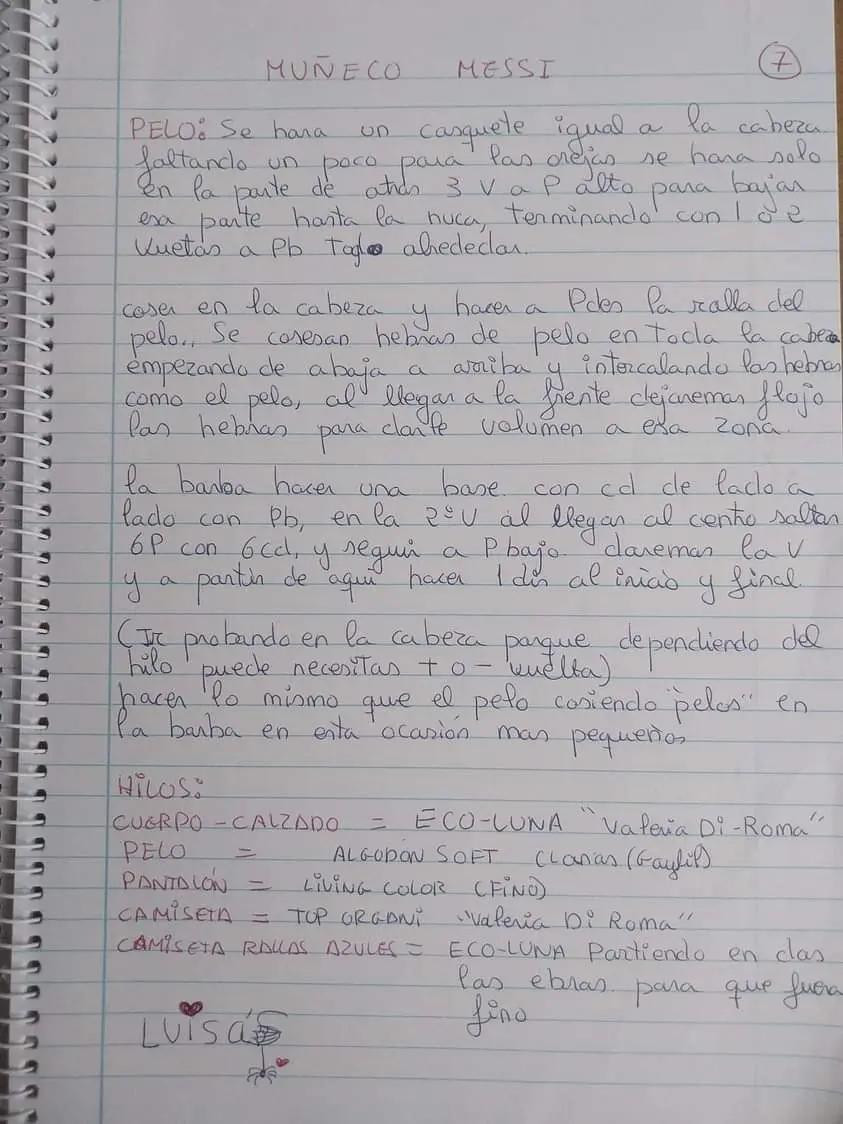 MUÑECO MESSI 7
PELO: Se hara un casquete igual a la cabeza
faltando un poco para las orejas se hara solo
en la parte de atras 3 V a P alto para bajar
esa parte hasta la nuca, terminando con 1 o 2
Vuetas a Pb Todo alrededor.
coser en la cabeza y hacer a Pdes la ralla del
pelo.. Se coseran hebras de pelo en Toda la cabeza
empezando de abaja a arriba y intercalando las hebras
como el pelo, al llegar a la frente dejaremas flojo
las hebras para darle volumen a esa zona.
la barba hacer una base con cd de lado a
lado con Pb, en la 2º V al llegar al centro saltar
6P con 6cd, y seguir a P bajo daremas la V
y a partir de aqui hacer 1 dis al inicio y final.
(Ir probando en la cabeza parque dependiendo del
hilo puede necesitas + o - vuelta)
hacer lo mismo que el pelo cosiendo "pelos" en
la barba en esta ocasión mas pequeños
HILOS:
CUERPO - CALZADO = ECO-LUNA "Valeria Di-Roma"
PELO = ALGODÓN SOFT Claras
PANTALÓN = LIVING COLOR (FINO)
CAMISETA = TOP ORGANI "Valeria Di Roma"
CAMISETA RALLAS AZULES = ECO-LUNA Partiendo en das
las ebras para que fuera
fino
LUISA